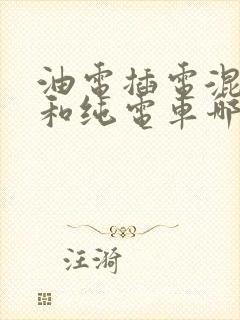 油電插電混
和纯電車哪
汪漪